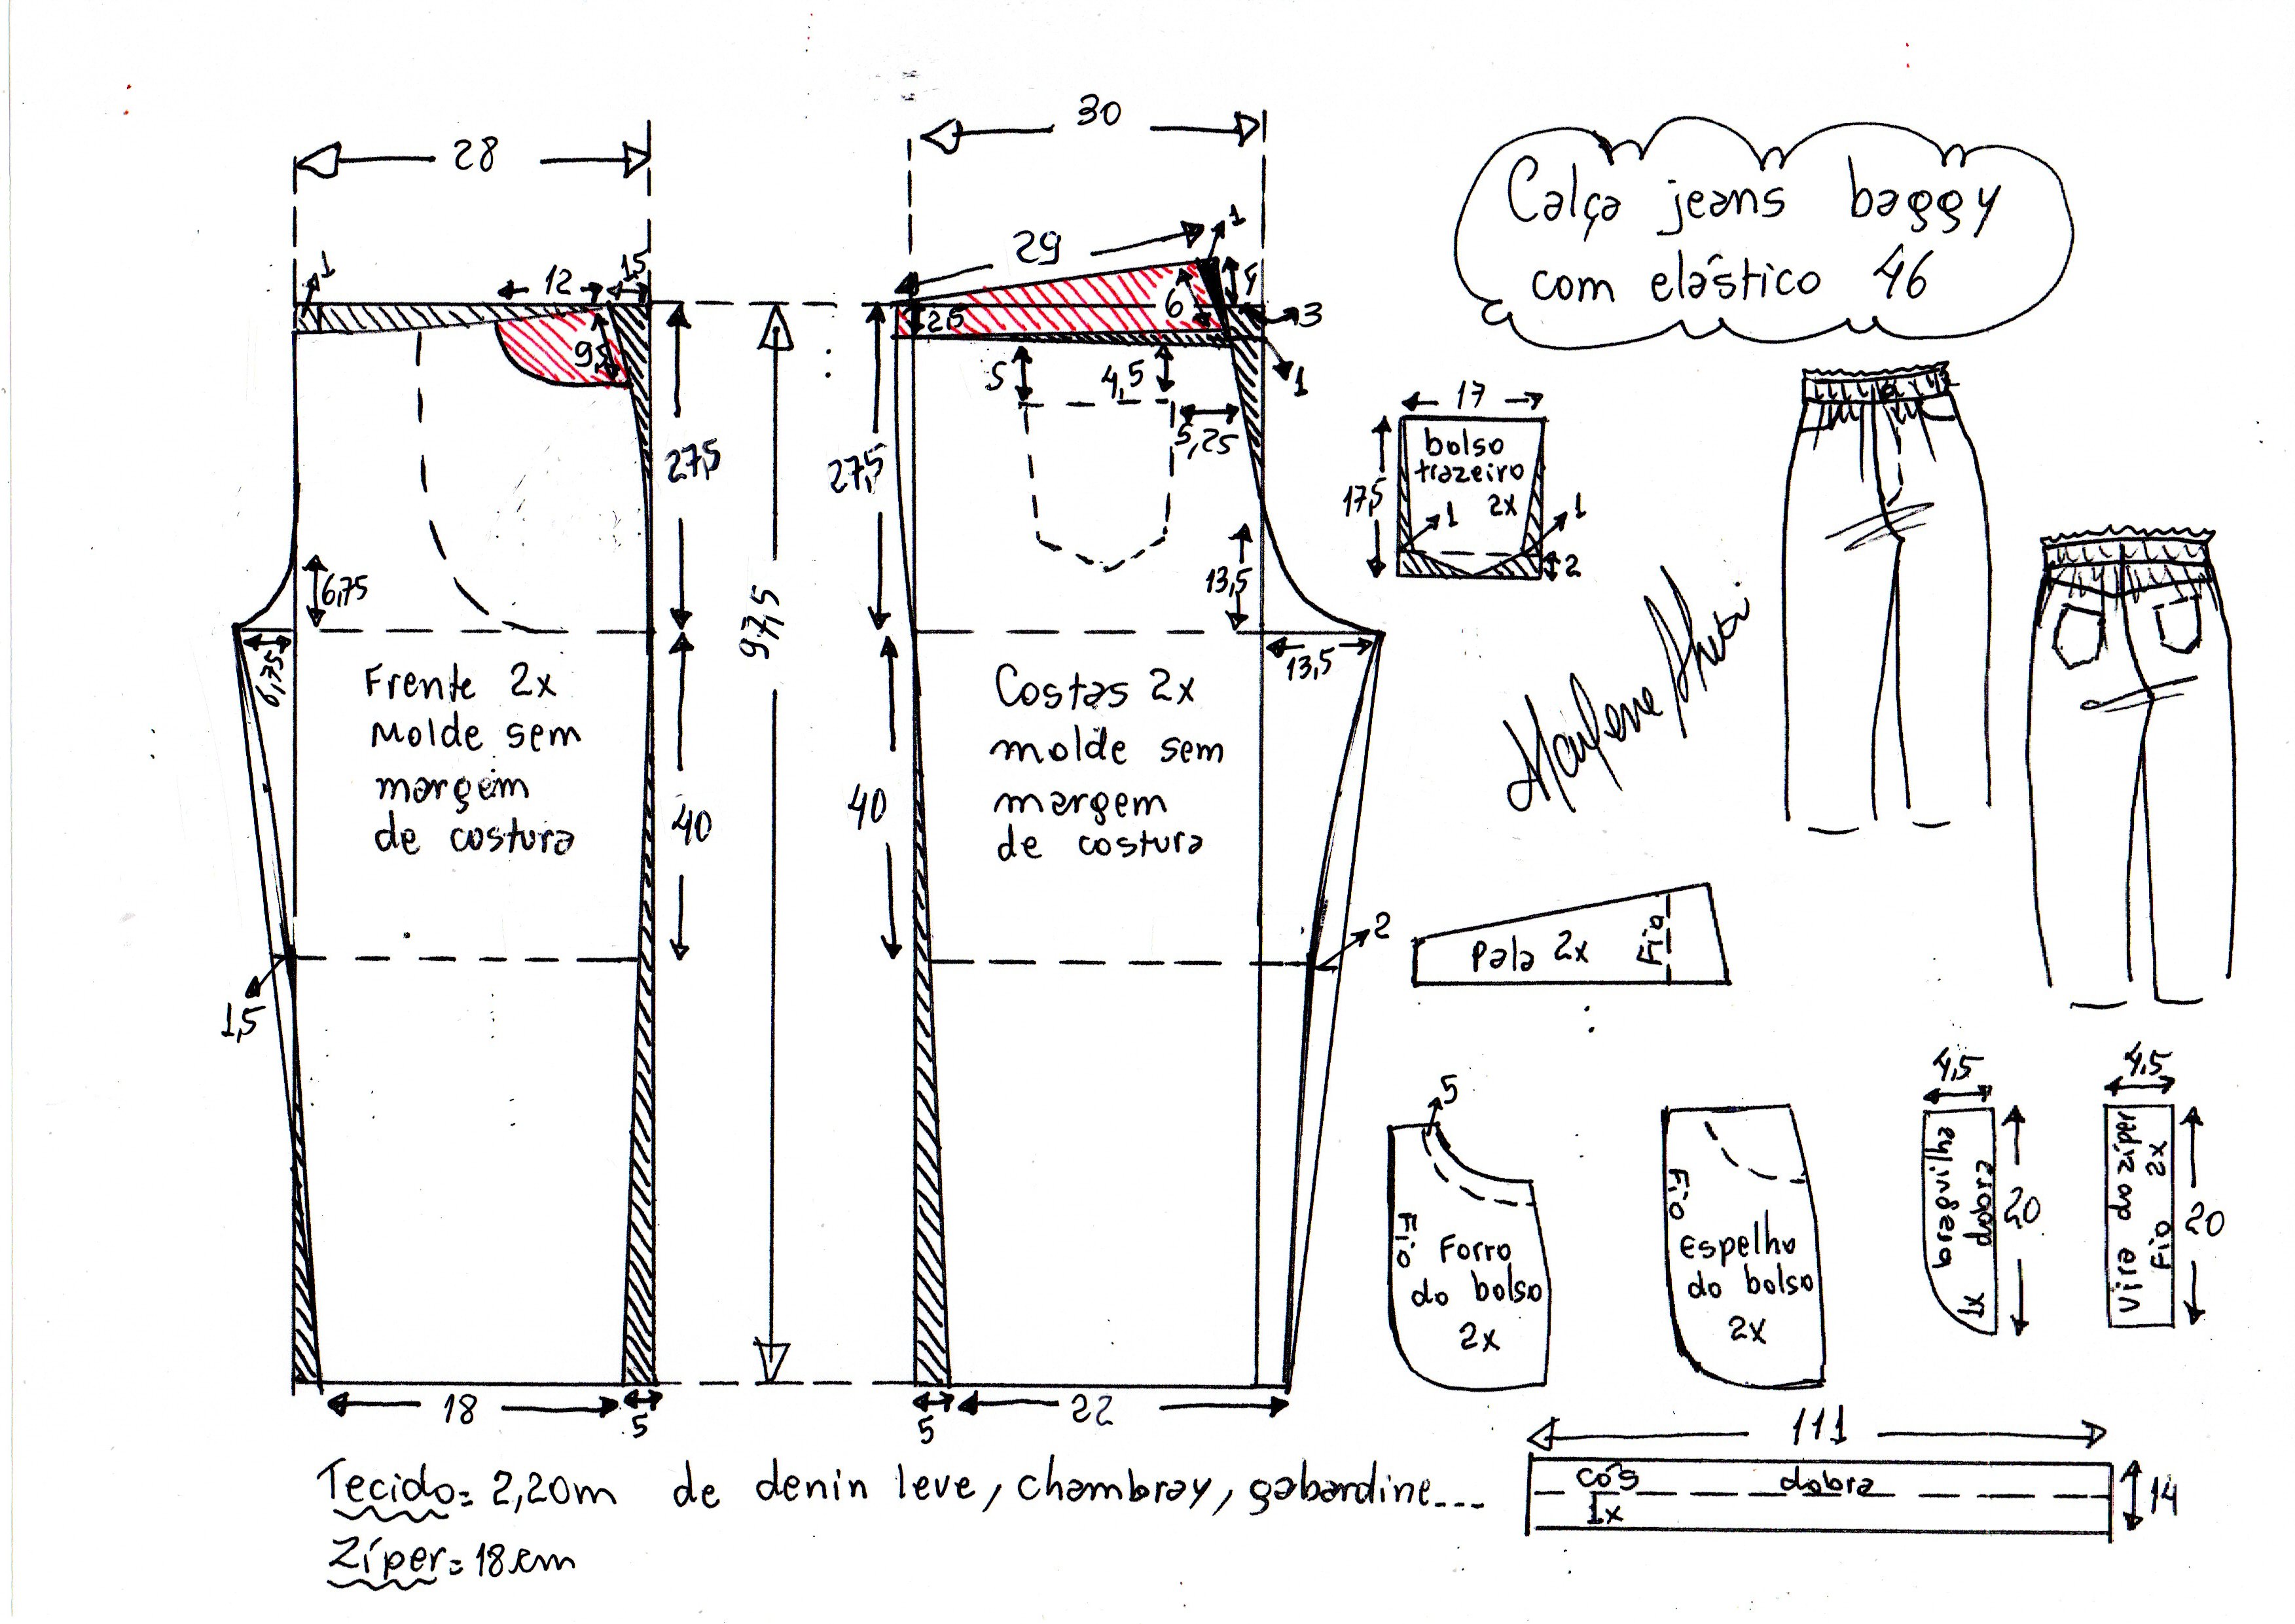 Calça jeans baggy
com elástico 46
28
1
12
1,5
9,5
27,5
6,75
6,75
Frente 2x
Molde sem
margem
de costura
40
1,5
18
5
97,5
30
29
1
4
6
2,5
3
1
5
4,5
5,25
27,5
13,5
13,5
Costas 2x
molde sem
margem
de costura
40
2
5
22
17
17,5
bolso
trazeiro
2x
1
1
2
Pala 2x
Fio
5
Fio
Forro
do bolso
2x
Fio
Espelho
do bolso
2x
4,5
braguilha
1x dobra
20
4,5
Vira do zíper
Fio 2x
20
111
cós dobra
1x
14
Tecido= 2,20m de denin leve, chambray, gabardine...
Zíper= 18cm